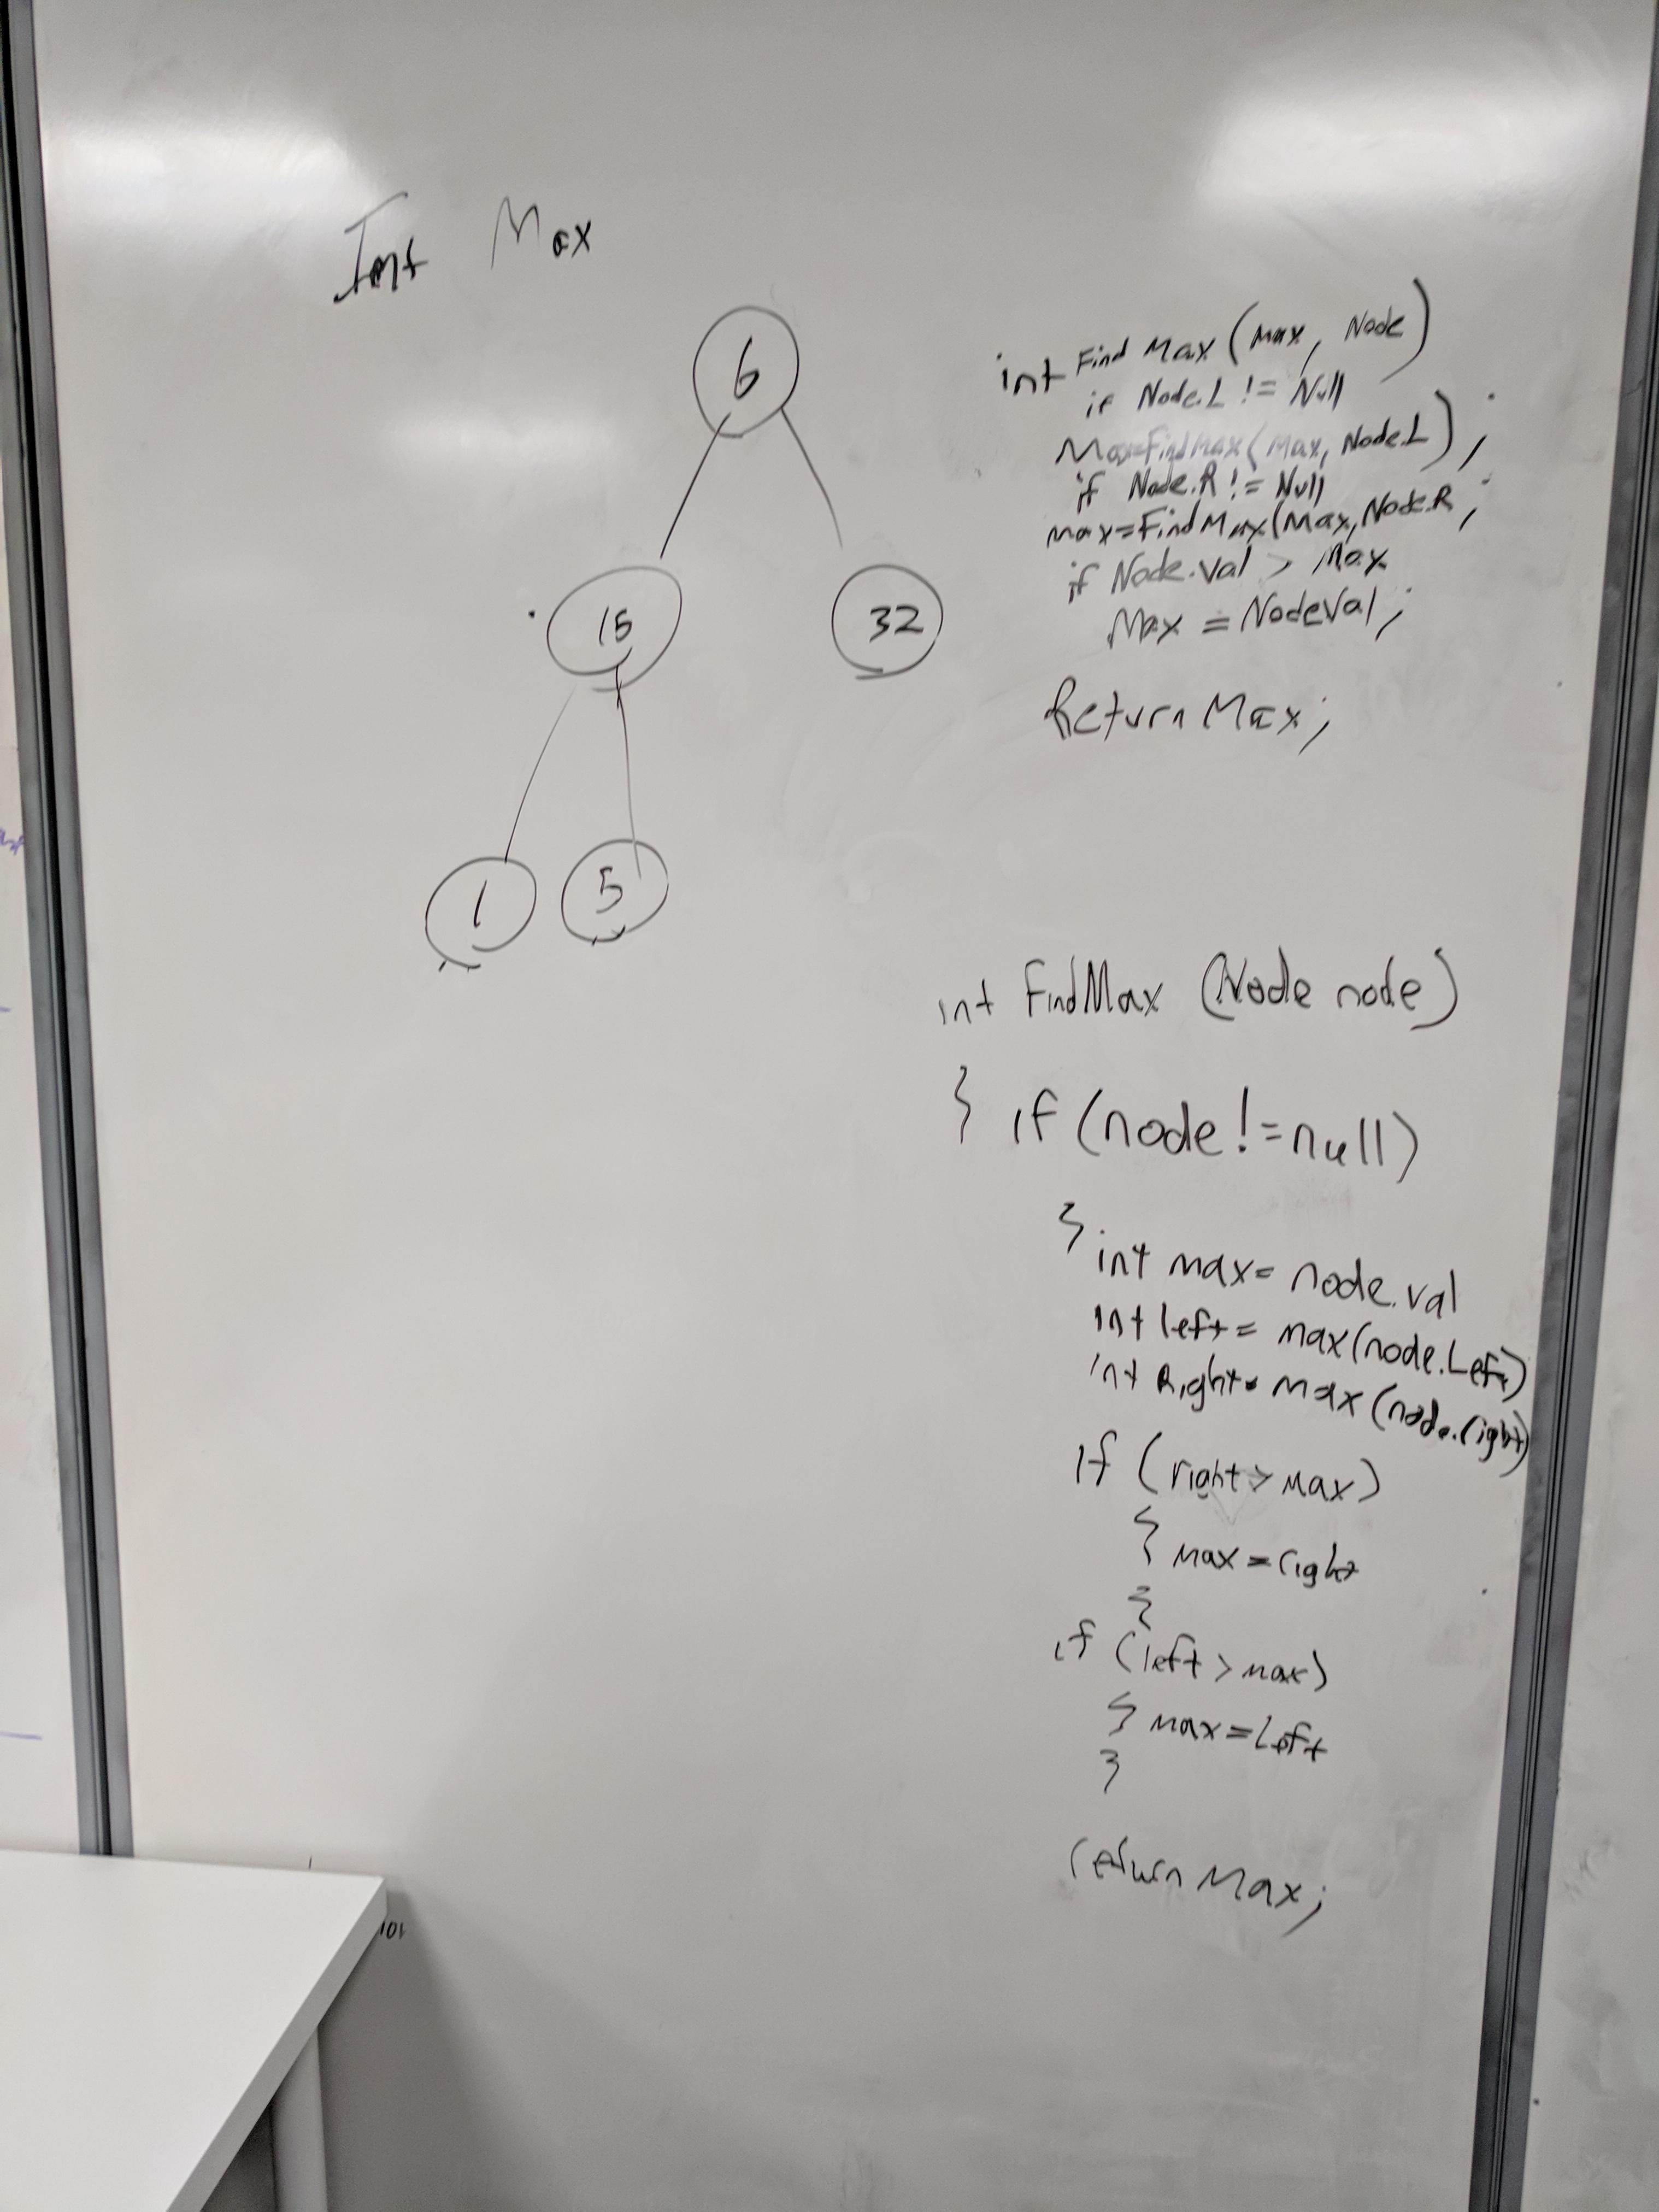 Int Max
6
15
32
1
5
int Find Max (max, Node)
if Node.L != Null
Max=FindMax(Max, Node.L);
if Node.R != Null
max=FindMax(Max, Node.R;
if Node.val > Max
Max = NodeVal;
Return Max;
int FindMax (Node node)
{ if (node != null)
{
int max= node.val
int left = max(node.Left)
int Right= max (node.right)
if (right > max)
{ max = right
}
if (left > max)
{ max = left
}
return Max;